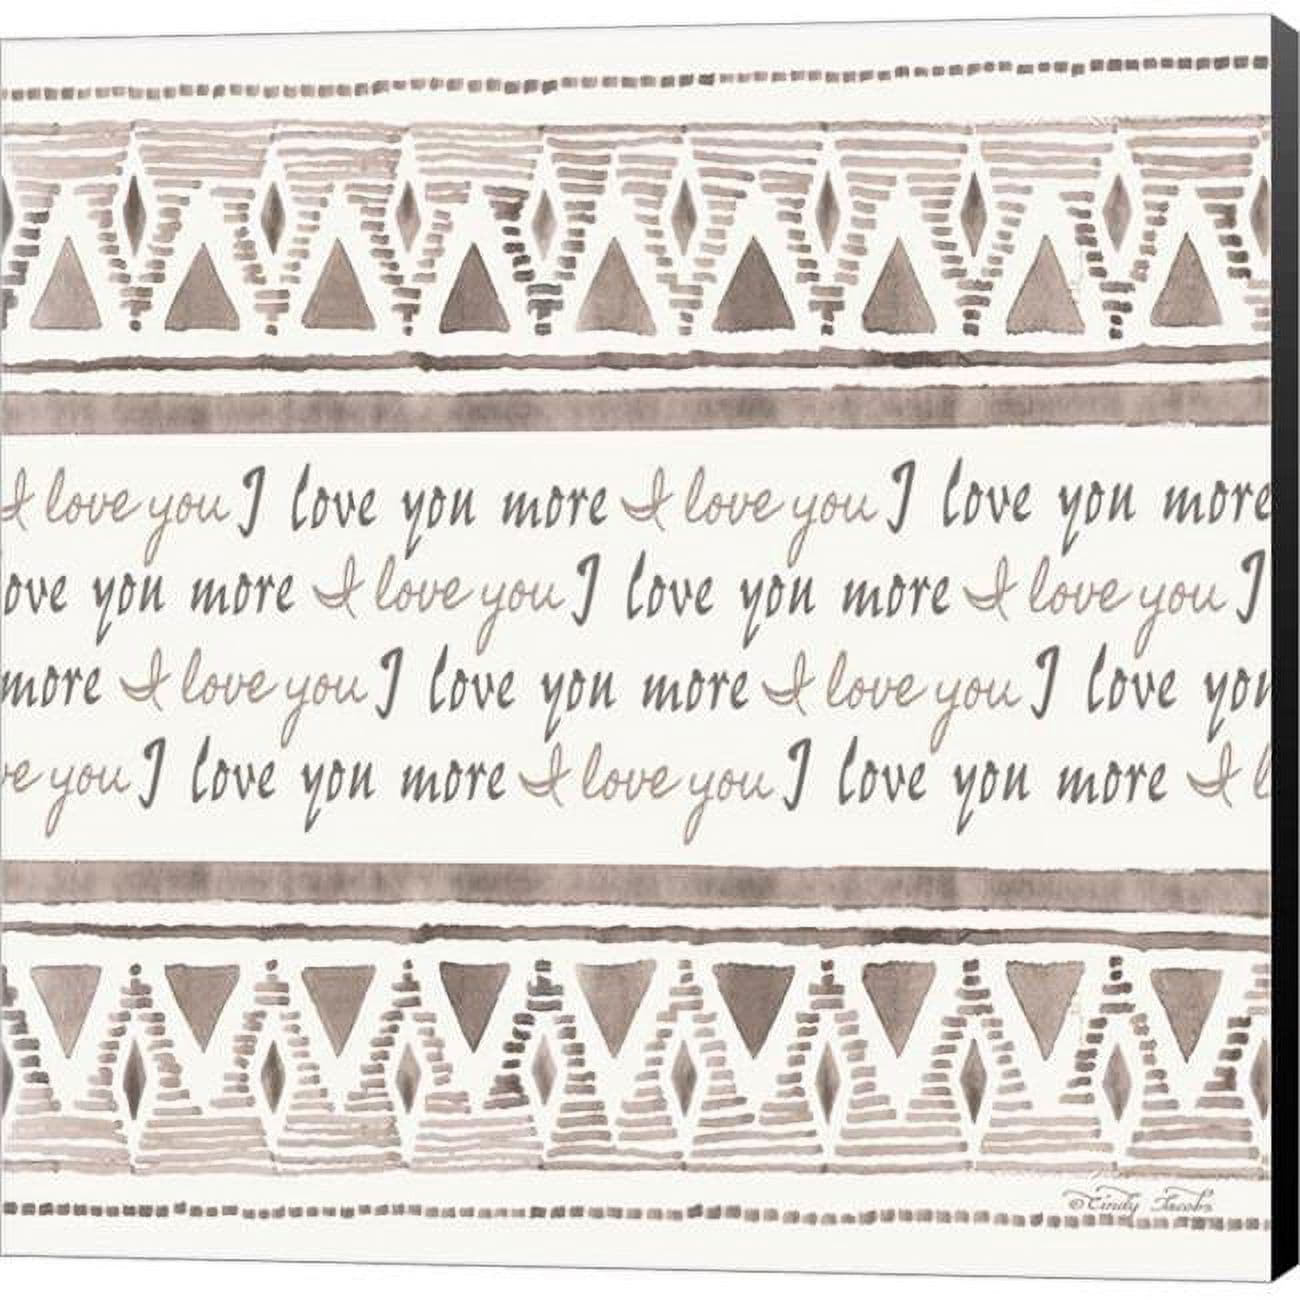 I love you I love you more I love you I love you more
ove you more I love you I love you more I love you I
more I love you I love you more I love you I love you
ve you I love you more I love you I love you more I l
©Cindy Jacobs